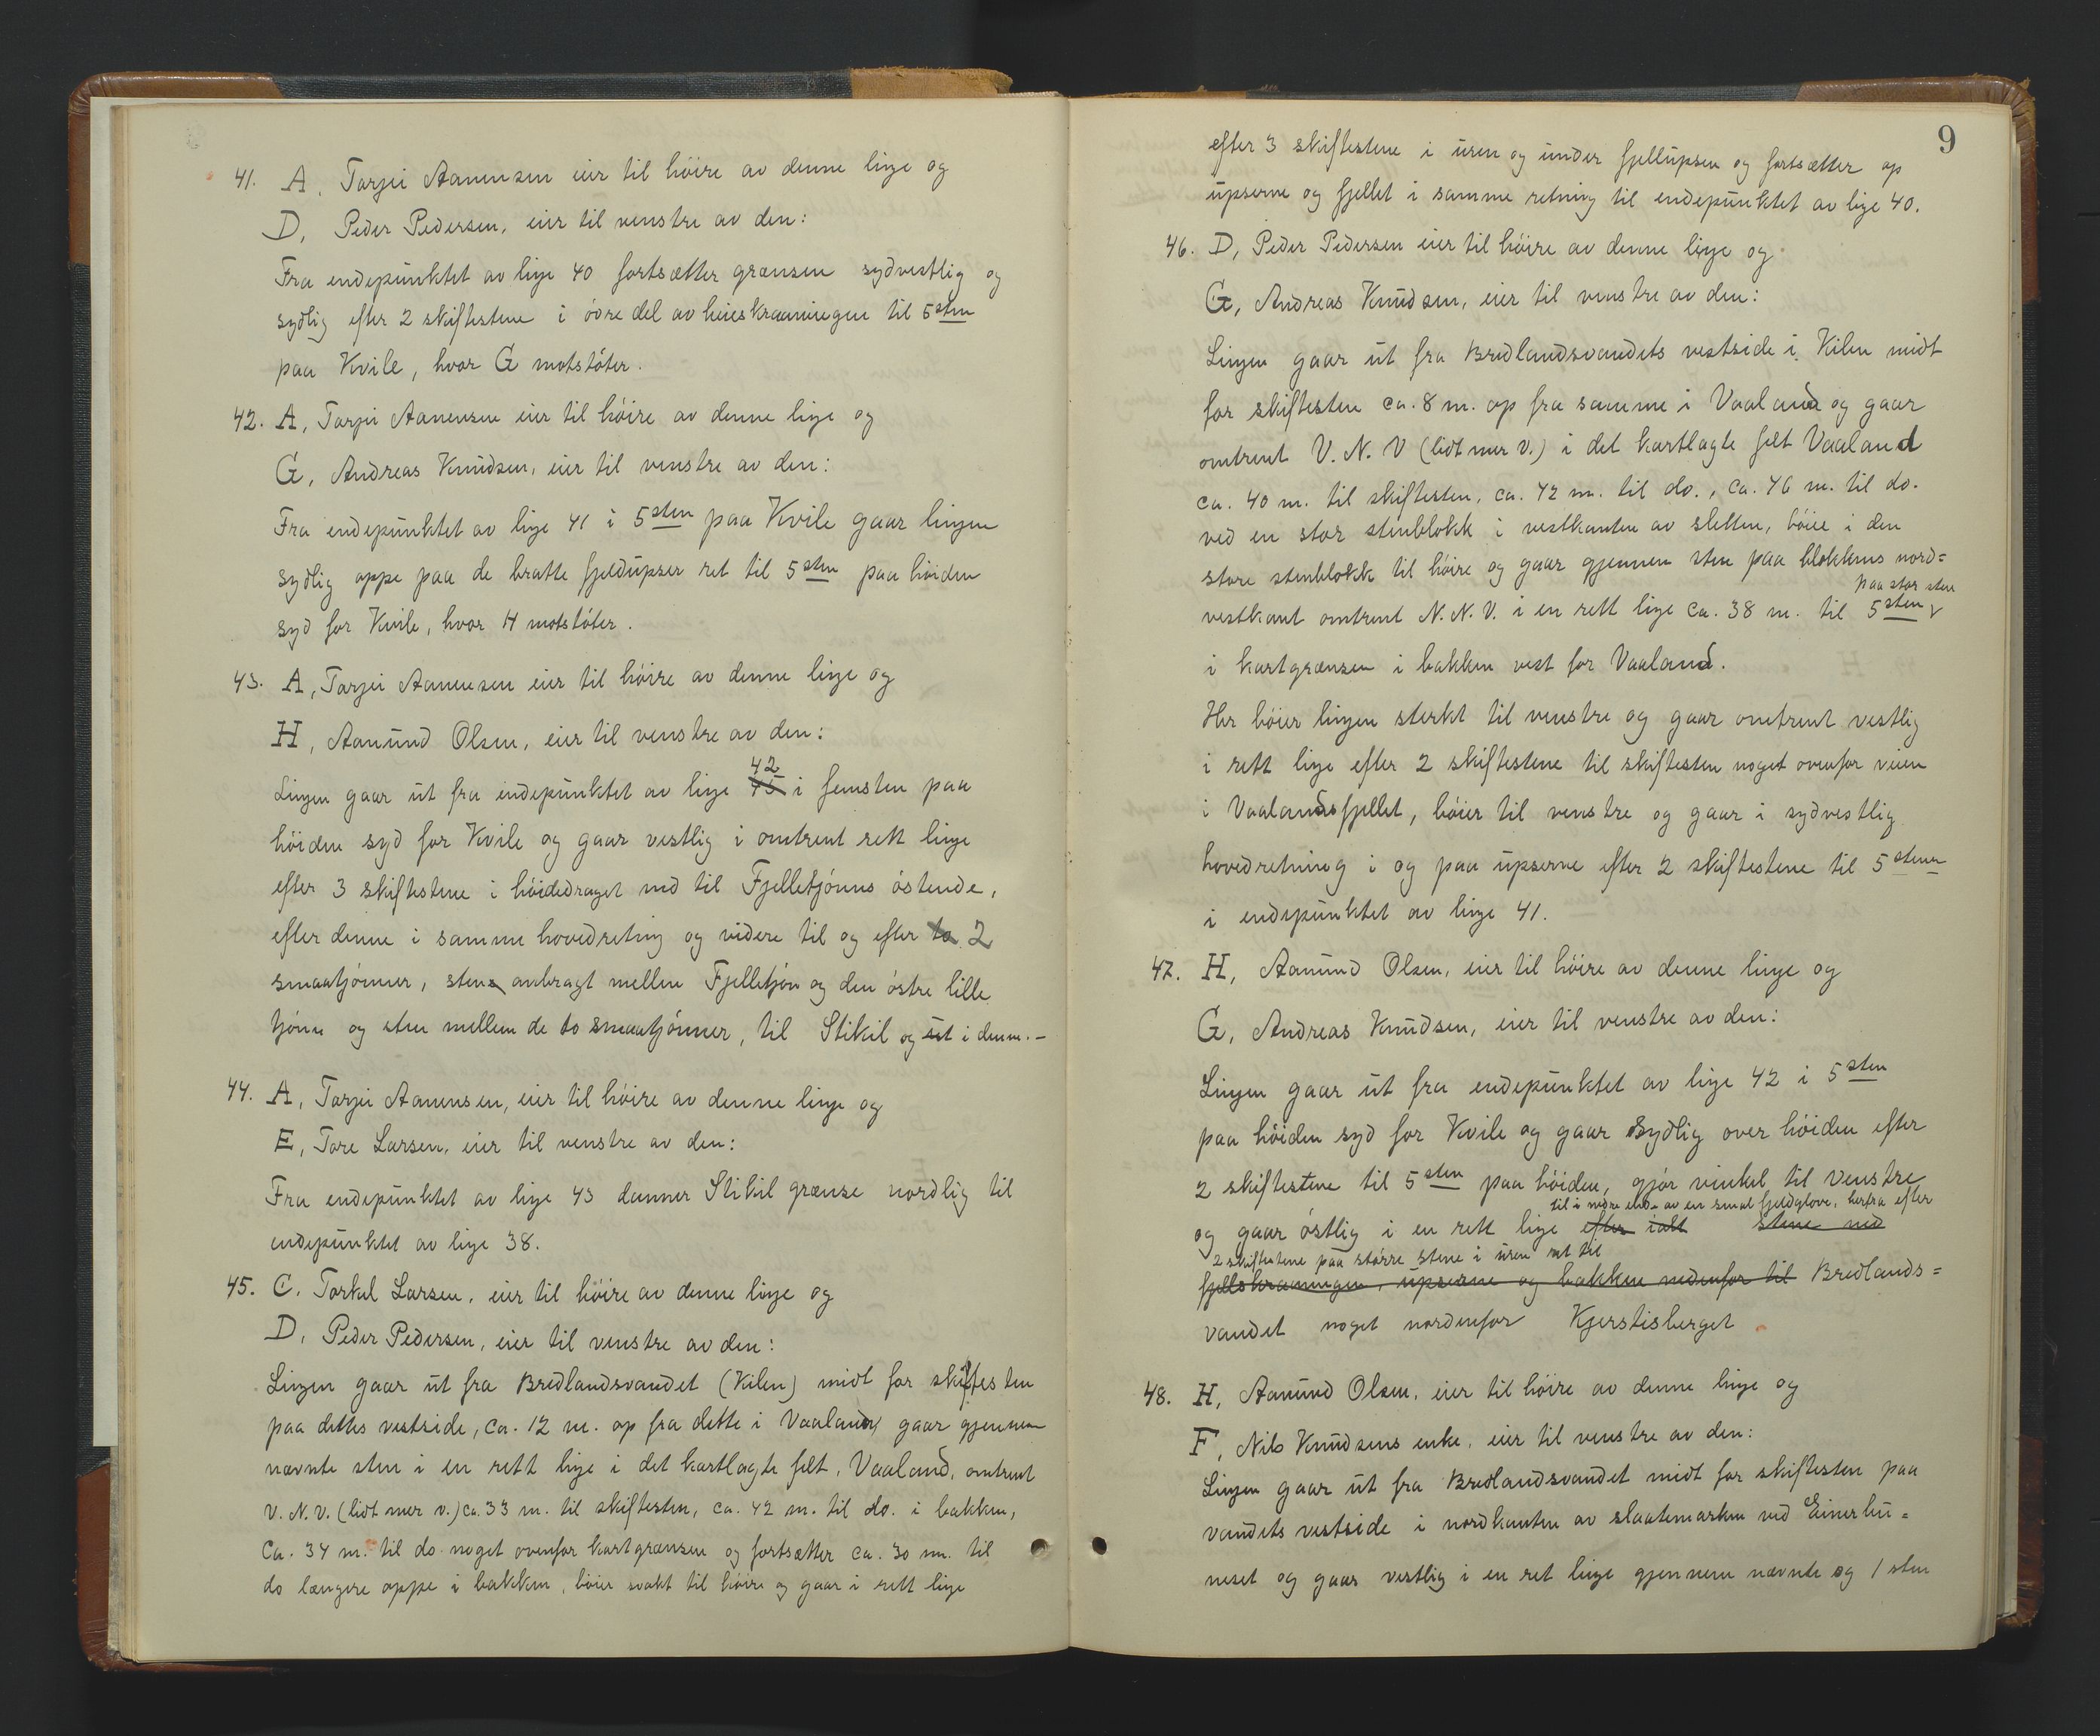 41. A. Tarjei Aanensen eier til höire av denne linje og
D, Peder Pedersen, eier til venstre av den:
Fra endepunktet av linje 40 fortsætter grænsen sydvestlig og
sydlig efter 2 skiftestene i övre del av heieskraaningen til 5sten
paa Kvile, hvor G motstöter.
42. A, Tarjei Aanensen eier til höire av denne linje og
G, Andreas Knudsen, eier til venstre av den:
Fra endepunktet av linje 41 i 5sten paa Kvile gaar linjen
sydlig oppe paa de bratte fjeldupser ret til 5sten paa höiden
syd for Kvile, hvor H motstöter.
43. A, Tarjei Aanensen eier til höire av denne linje og
H, Aanund Olsen, eier til venstre av den:
42
Linjen gaar ut fra endepunktet av linje 43 i femsten paa
höiden syd for Kvile og gaar vestlig i omtrent rett linje
efter 3 skiftestene i höidedraget ned til Fjelletjönns östende,
efter denne i samme hovedretning og videre til og efter to 2
smaatjönner, stens anbragt mellem Fjelletjön og den östre lille
tjönn og sten mellem de to smaatjönner, til Stikil og ut i denne.-
44. A, Tarjei Aanensen, eier til höire av denne linje og
E, Tore Larsen, eier til venstre av den:
Fra endepunktet av linje 43 danner Stikil grænse nordlig til
endepunktet av linje 38.
45. C. Torkel Larsen, eier til höire av denne linje og
D, Peder Pedersen, eier til venstre av den:
Linjen gaar ut fra Bredlandsvandet (Kilen) midt for skiftesten
paa dettes vestside, ca. 12 m. op fra dette i Vaaland, gaar gjennem
nævnte sten i en rett linje i det kartlagte felt, Vaaland, omtrent
V.N.V. (lidt mer v.) ca. 33 m. til skiftesten, ca. 42 m. til do. i bakken,
Ca. 34 m. til do noget ovenfor kartgrænsen og fortsætter ca. 30 m. til
do længere oppe i bakken, böier svakt til höire og gaar i rett linje
9
efter 3 skiftestene i uren og under fjellupsen og fortsætter op
upserne og fjellet i samme retning til endepunktet av linje 40.
46. D, Peder Pedersen eier til höire av denne linje og
G, Andreas Knudsen, eier til venstre av den:
Linjen gaar ut fra Bredlandsvandets vestside i Kilen midt
for skiftesten ca. 8 m. op fra samme i Vaaland og gaar
omtrent V.N.V (lidt mer v.) i det kartlagte felt Vaaland
ca. 40 m. til skiftesten, ca. 72 m. til do., ca. 76 m. til do.
ved en stor stenblokk i vestkanten av sletten, böier i den
store stenblokk til höire og gaar gjennem sten paa blokkens nord=
paa stor sten
vestkant omtrent N.N.V. i en rett linje ca. 38 m. til 5sten
i kartgrænsen i bakken vest for Vaaland.
Her böier linjen sterkt til venstre og gaar omtrent vestlig
i rett linje efter 2 skiftestene til skiftesten noget ovenfor veien
i Vaalandsfjellet, böier til venstre og gaar i sydvestlig
hovedretning i og paa upserne efter 2 skiftestene til 5stenen
i endepunktet av linje 41.
47. H, Aanund Olsen, eier til höire av denne linje og
G, Andreas Knudsen, eier til venstre av den:
Linjen gaar ut fra endepunktet av linje 42 i 5sten
paa höiden syd for Kvile og gaar sydlig over höiden efter
2 skiftestene til 5sten paa höiden, gjör vinkel til venstre
til i nedre ende av en smal fjeldglove, herfra efter
og gaar östlig i en rett linje efter ialt stene ned
2 skiftestene paa större stene i uren ret til
fjellskraaningen, upserne og bakken nedenfor til Bredlands=
vandet noget nordenfor Kjerstisberget
48. H, Aanund Olsen, eier til höire av denne linje og
F, Nils Knudsens enke, eier til venstre av den:
Linjen gaar ut fra Bredlandsvandet midt for skiftesten paa
vandets vestside i nordkanten av slaatemarken ved Einerhu=
neset og gaar vestlig i en ret linje gjennem nævnte og 1 sten